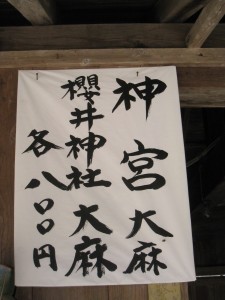 神宮大麻
櫻井神社大麻
各八〇〇円